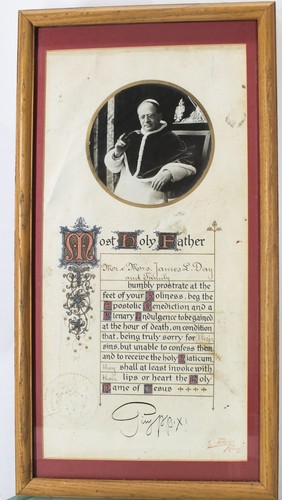 Most Holy Father
Mr. & Mrs. James L. Day
and Family
humbly prostrate at the
feet of your Holiness, beg the
Apostolic Benediction and a
Plenary Indulgence to be gained
at the hour of death, on condition
that, being truly sorry for their
sins, but unable to confess them
and to receive the holy Viaticum
they shall at least invoke with
their lips or heart the Holy
Name of Jesus
Pius PP. XI